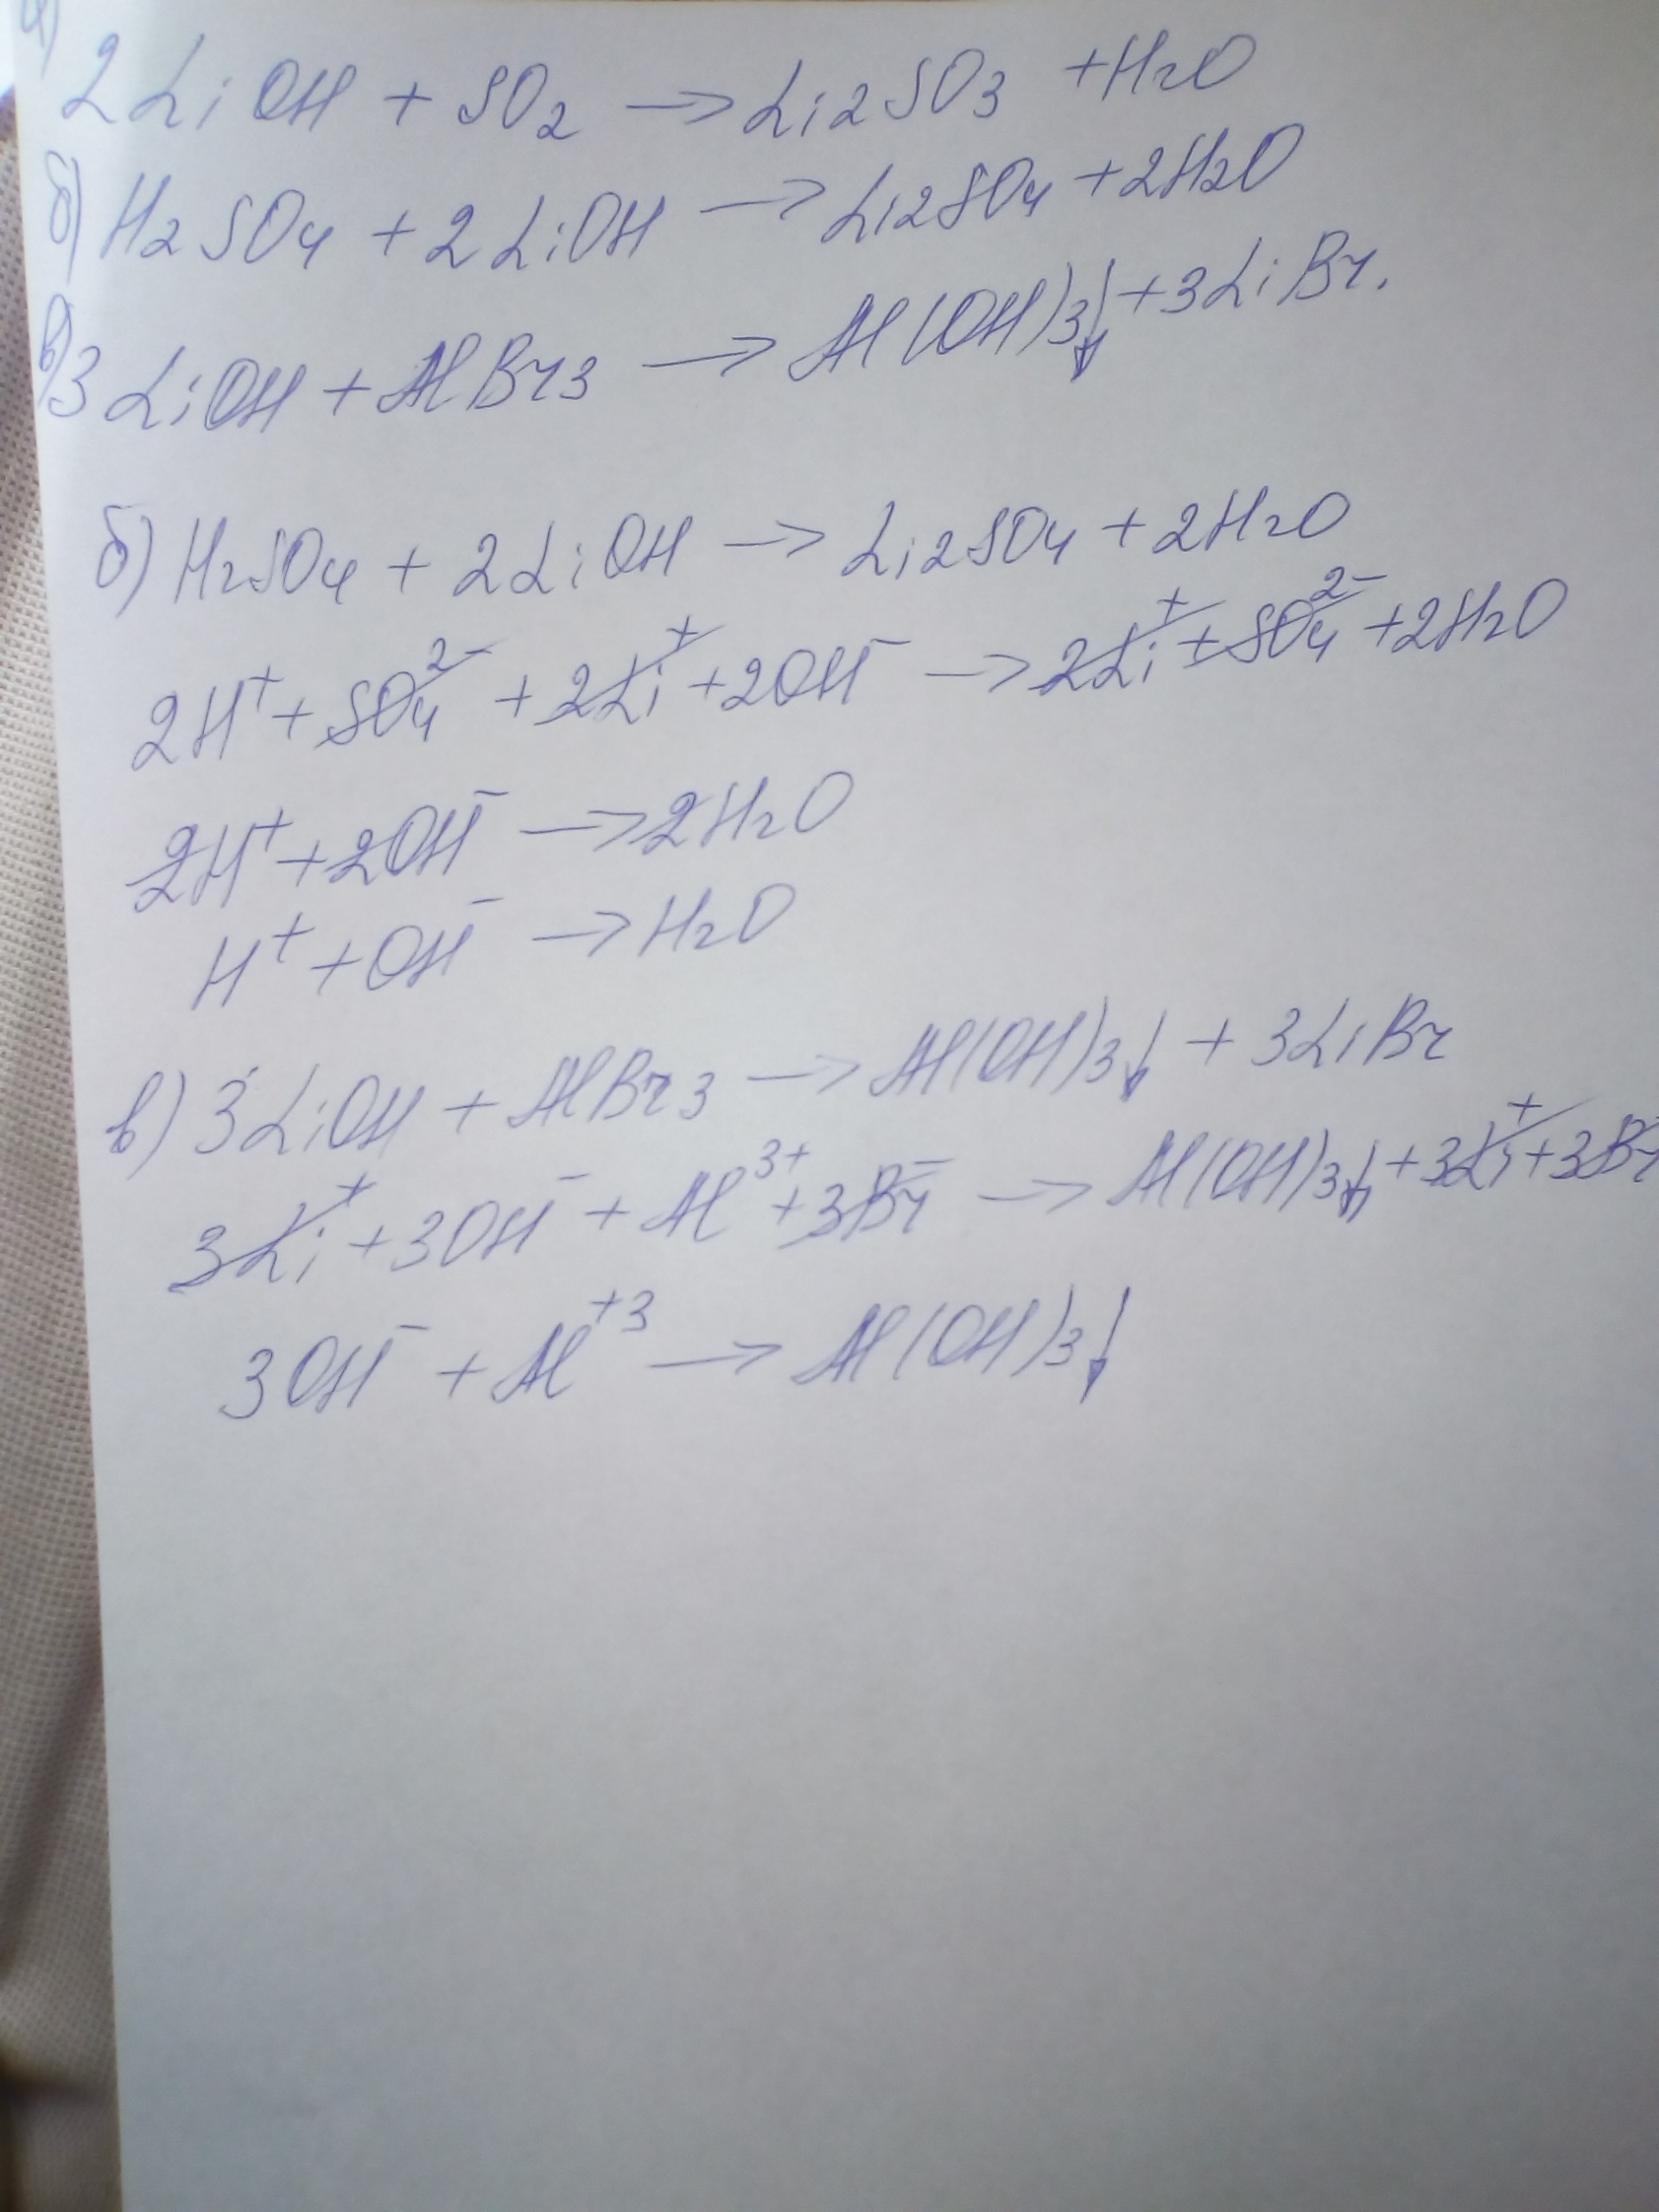 а)
2LiOH + SO₂ → Li₂SO₃ + H₂O
б) H₂SO₄ + 2LiOH → Li₂SO₄ + 2H₂O
в) 3LiOH + AlBr₃ → Al(OH)₃↓ + 3LiBr.
б) H₂SO₄ + 2LiOH → Li₂SO₄ + 2H₂O
2H⁺ + SO₄²⁻ + 2Li⁺ + 2OH⁻ → 2Li⁺ + SO₄²⁻ + 2H₂O
2H⁺ + 2OH⁻ → 2H₂O
H⁺ + OH⁻ → H₂O
в) 3LiOH + AlBr₃ → Al(OH)₃↓ + 3LiBr
3Li⁺ + 3OH⁻ + Al³⁺ + 3Br⁻ → Al(OH)₃↓ + 3Li⁺ + 3Br⁻
3OH⁻ + Al⁺³ → Al(OH)₃↓